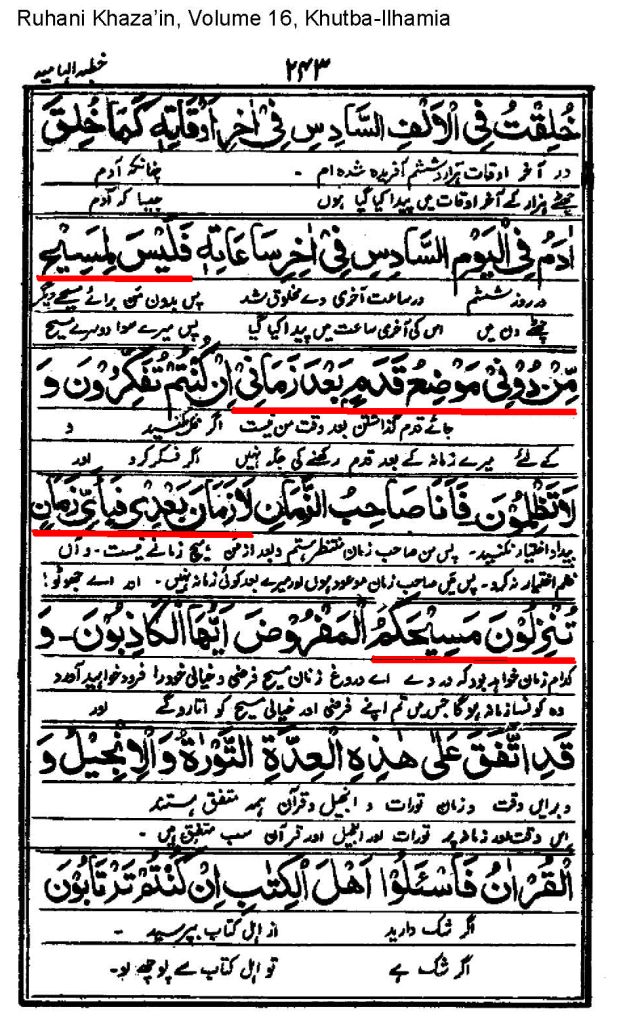 Ruhani Khaza’in, Volume 16, Khutba-Ilhamia
خطبہ الہامیہ
۲۴۳
خُلِقْتُ فِي الْاَلْفِ السَّادِسِ فِيْ اٰخِرِ اَوْقَاتِهٖ كَمَا خُلِقَ
در آخر اوقات ہزار ششم آفریدہ شدہ ام - چنانکہ آدم
چھٹے ہزار کے آخر اوقات میں پیدا کیا گیا ہوں جیسا کہ آدم
اٰدَمُ فِي الْيَوْمِ السَّادِسِ فِيْ اٰخِرِ سَاعَاتِهٖ فَلَيْسَ لِمَسِيْحٍ
در روز ششم در ساعت آخری وے مخلوق شد پس بدون من برائے مسیحے دیگر
چھٹے دن میں اس کی آخری ساعت میں پیدا کیا گیا پس میرے سوا دوسرے مسیح
مِّنْ دُوْنِيْ مَوْضِعُ قَدَمٍ بَعْدَ زَمَانِيْ اِنْ كُنْتُمْ تُفَكِّرُوْنَ وَ
جائے قدم گذاشتن بعد وقت من نیست اگر فکر کنید و
کے لئے میرے زمانہ کے بعد قدم رکھنے کی جگہ نہیں اگر فکر کرو اور
لَا تَظْلِمُوْنَ فَاَنَا صَاحِبُ الزَّمَانِ لَا زَمَانَ بَعْدِيْ فَبِاَيِّ زَمَانٍ
بیداد اختیار نکنید۔ پس من صاحب زمان منتظر ہستم و بعد از من ہیچ زمانے نیست۔ و آں
ظلم اختیار نہ کرو۔ پس میں صاحب زمان موعود ہوں اور میرے بعد کوئی زمانہ نہیں۔ اور اے جھوٹو!
تُنْزِلُوْنَ مَسِيْحَكُمُ الْمَفْرُوْضَ اَيُّهَا الْكَاذِبُوْنَ - وَ
کدام زمان خواہد بود کہ در وے اے دروغ زنان مسیح فرضی و خیالی خود را فرود خواہید آورد
وہ کونسا زمانہ ہوگا جس میں تم اپنے فرضی اور خیالی مسیح کو اتارو گے اور
قَدِ اتَّفَقَ عَلٰى هٰذِهِ الْعِدَّةِ التَّوْرَاةُ وَالْاِنْجِيْلُ وَ
و بر ایں وقت و زمان تورات و انجیل و قرآن ہمہ متفق ہستند
اس وقت اور زمانہ پر تورات اور انجیل اور قرآن سب متفق ہیں -
الْقُرْاٰنُ فَاسْئَلُوْا اَهْلَ الْكِتٰبِ اِنْ كُنْتُمْ تَرْتَابُوْنَ
اگر شک دارید از اہل کتاب بپرسید -
اگر شک ہے تو اہل کتاب سے پوچھ لو -